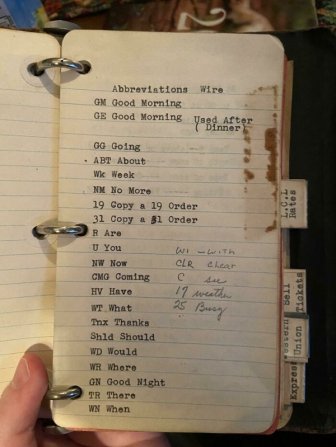 Abbreviations Wire
GM Good Morning
GE Good Morning Used After
( Dinner)
GG Going
ABT About
Wk Week
NM No More
19 Copy a 19 Order
31 Copy a 31 Order
R Are
U You
WI - with
NW Now
CLR Clear
CMG Coming
C see
HV Have
17 weather
WT What
25 Busy
Tnx Thanks
Shld Should
WD Would
WR Where
GN Good Night
TR There
WN When
L.C.L
Rates
Sell
Tickets
Western
Union
Express